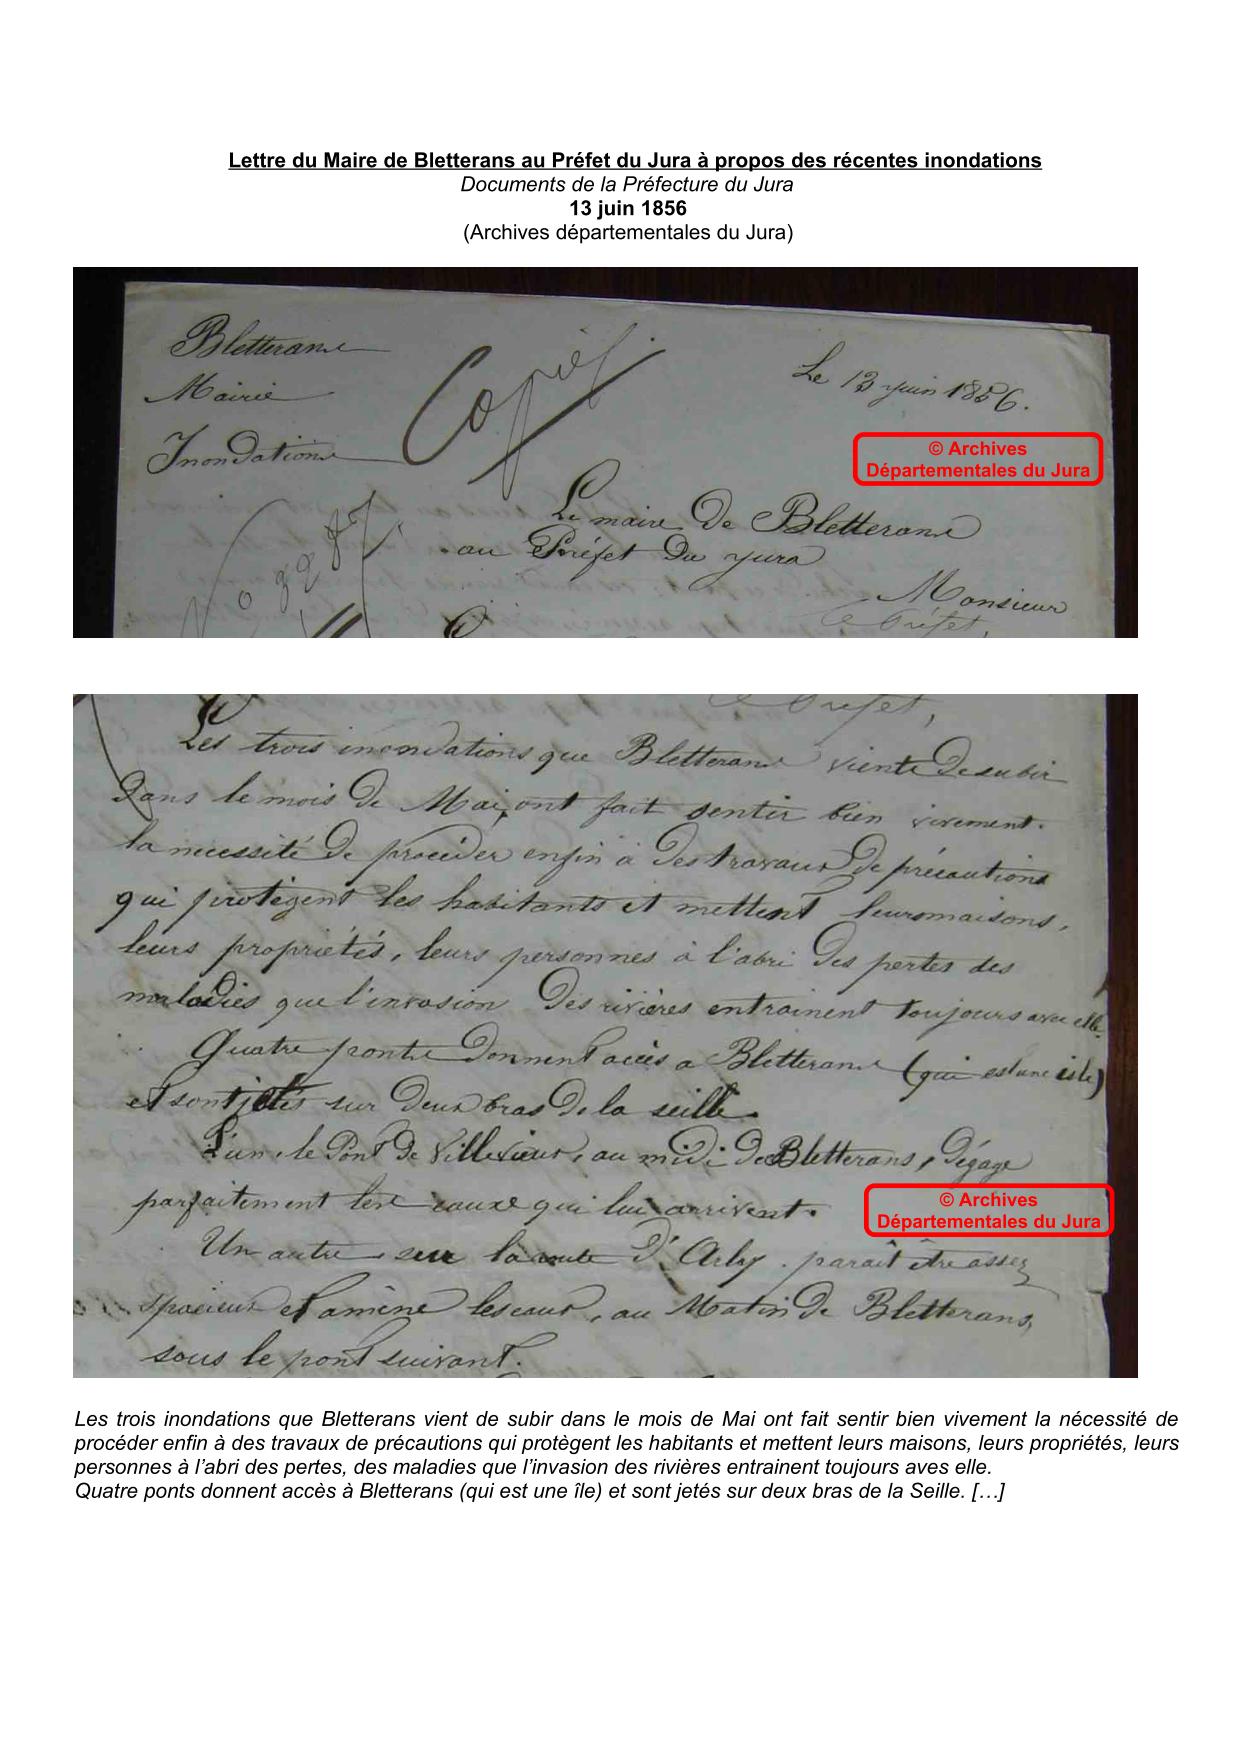 Lettre du Maire de Bletterans au Préfet du Jura à propos des récentes inondations
Documents de la Préfecture du Jura
13 juin 1856
(Archives départementales du Jura)
Bletterans
Mairie
Inondations
Copié
Le 13 juin 1856.
© Archives
Départementales du Jura
Le maire De Bletterans
au Préfet Du Jura
Monsieur
le Préfet,
Les trois inondations que Bletterans vient de subir
Dans le mois de Mai, ont fait sentir bien vivement.
la nécessité De procéder enfin à Des travaux De précautions
qui protègent les habitants et mettent leurs maisons,
leurs propriétés, leurs personnes à l'abri Des pertes des
maladies que l'invasion Des rivières entrainent toujours avec elle.
Quatre ponts Donnent accès a Bletterans (qui est une isle)
et sont jetés sur Deux bras De la seille.
L'un, le Pont De Villevieux, au midi De Bletterans, Dégage
parfaitement les eaux qui lui arrivent.
© Archives
Départementales du Jura
Un autre sur la route D'Arlay. parait être assez
spacieux et amène les eaux, au Matin De Bletterans,
sous le pont suivant.
Les trois inondations que Bletterans vient de subir dans le mois de Mai ont fait sentir bien vivement la nécessité de
procéder enfin à des travaux de précautions qui protègent les habitants et mettent leurs maisons, leurs propriétés, leurs
personnes à l'abri des pertes, des maladies que l'invasion des rivières entrainent toujours aves elle.
Quatre ponts donnent accès à Bletterans (qui est une île) et sont jetés sur deux bras de la Seille. […]